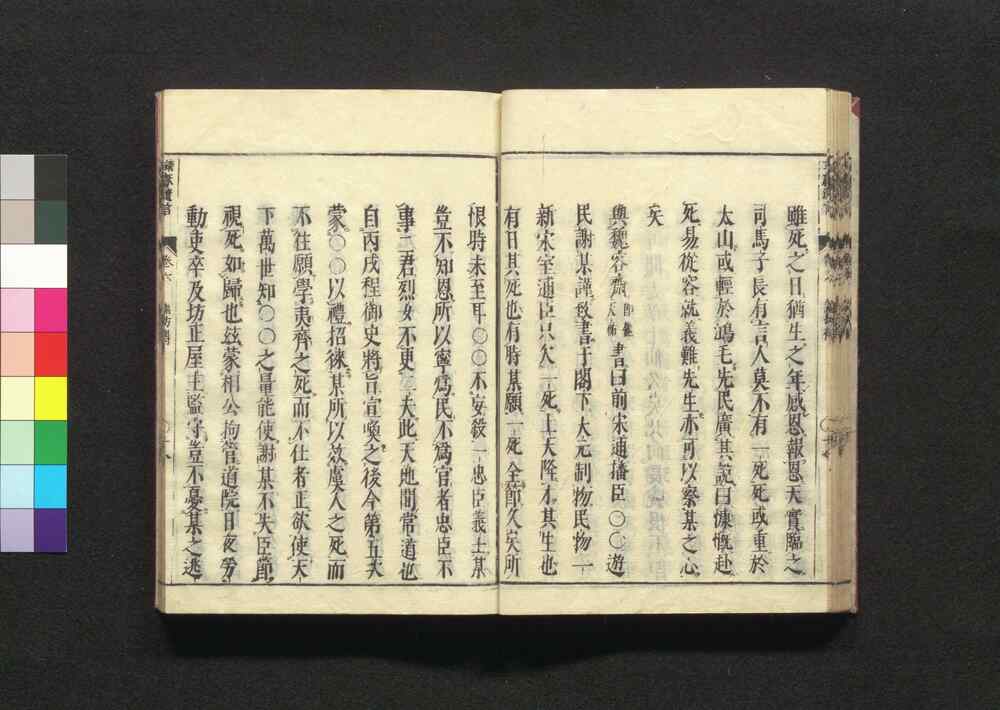 雖死之日猶生之年感恩報恩天實臨之
司馬子長有言人莫不有一死死或重於
太山或輕於鴻毛先民廣其說曰慷慨赴
死易從容就義難先生亦可以察某之心
矣
與魏容齋書曰前宋逋播臣〇〇遊
民謝某謹致書于閣下大元制物民物一
新宋室逋臣只欠一死上天降才其生也
有日其死也有時某願一死全節久矣所
恨時未至耳〇〇不妄殺一忠臣義士某
豈不知恩所以寧爲民不爲官者忠臣不
事二君烈女不更二夫此天地間常道也
自丙戌程御史將旨宣喚之後今第五次
蒙〇〇以禮招徠某所以效虞人之死而
不往願學夷齊之死而不仕者正欲使天
下萬世知〇〇之量能使謝某不失臣節
視死如歸也玆蒙相公拘管道院日夜勞
動吏卒及坊正屋主監守豈不憂某之逃
卷六